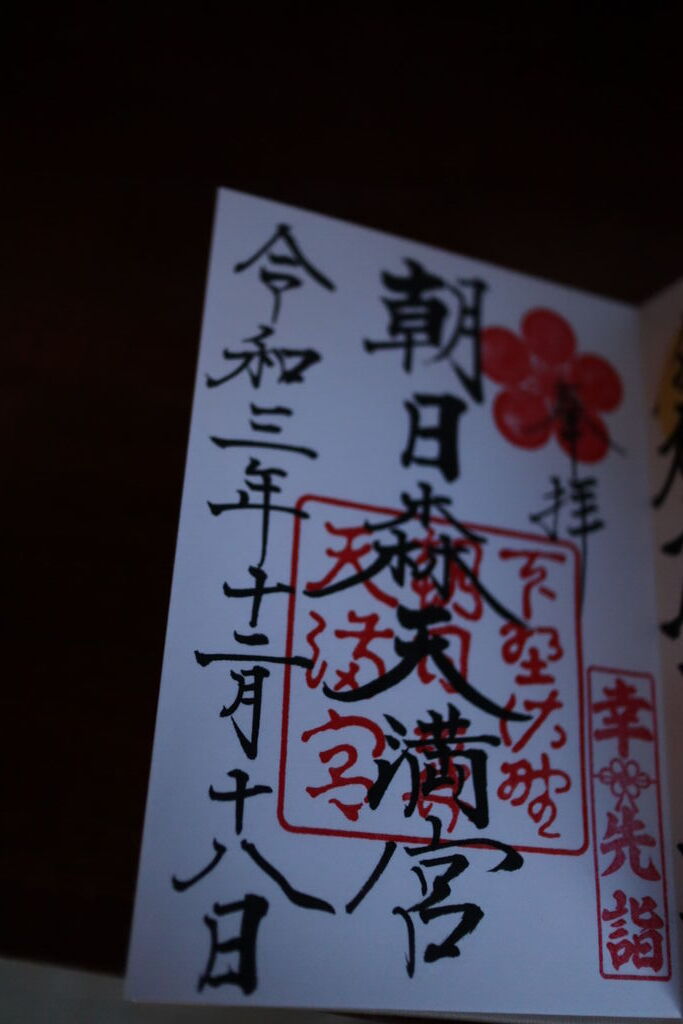 奉拝
朝日森天満宮
令和三年十二月十八日
下野佐野
朝日森
天満宮
幸先詣